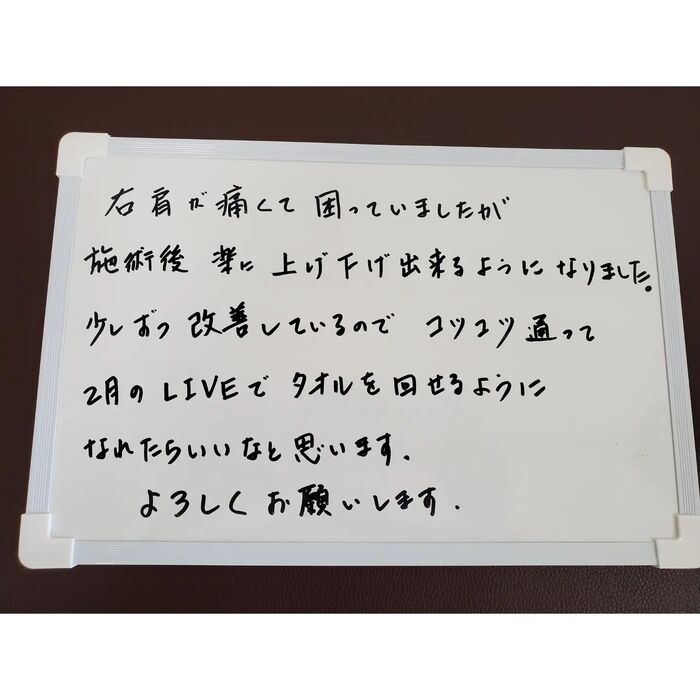 右肩が痛くて困っていましたが
施術後 楽に上げ下げ出来るようになりました。
少しずつ改善しているので コツコツ通って
2月のLIVEでタオルを回せるように
なれたらいいなと思います。
よろしくお願いします。